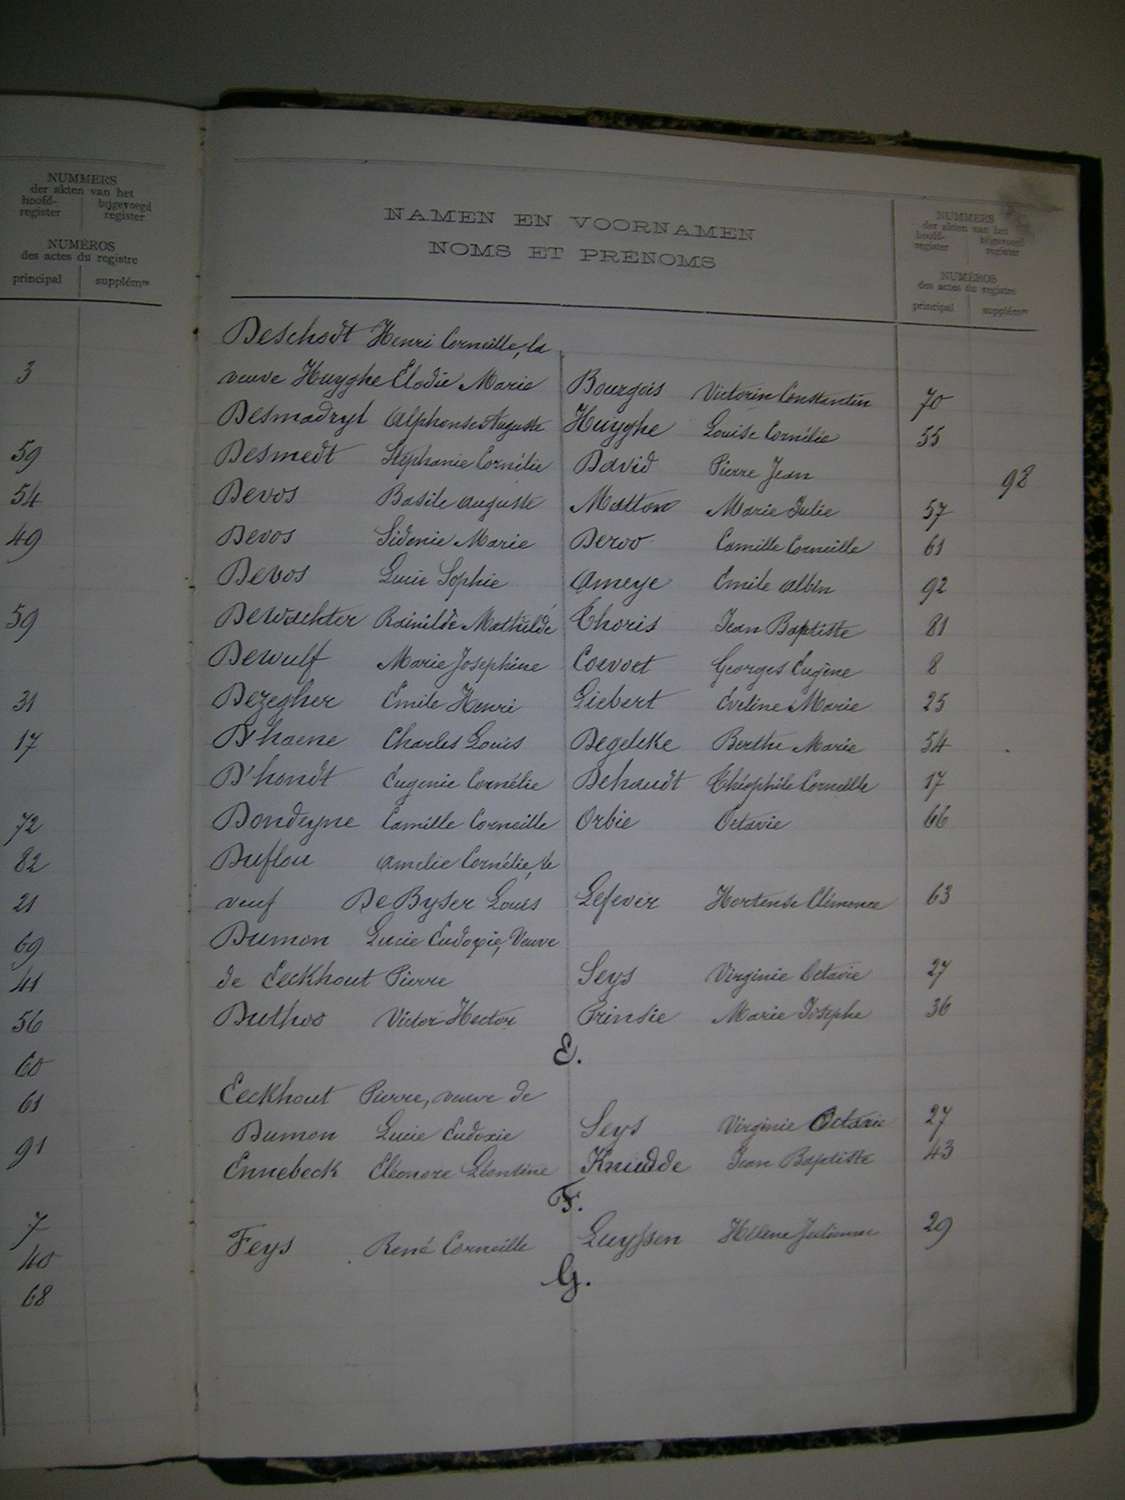 NUMMERS
der akten van het
hoofd- bijgevoegd
register register
NUMÉROS
des actes du registre
principal supplémre
3
59
54
49
59
31
17
72
82
21
69
41
56
60
61
91
7
40
68
NAMEN EN VOORNAMEN
NOMS ET PRÉNOMS
NUMMERS
der akten van het
hoofd- bijgevoegd
register register
NUMÉROS
des actes du registre
principal supplémre
Deschodt Henri Corneille, la
veuve Huyghe Elodie Marie Bourgois Victorin Constantin 70
Desmadryl Alphonse Auguste Huyghe Louise Cornélie 55
Desmedt Stéphanie Cornélie David Pierre Jean 98
Devos Basile Auguste Matton Marie Julie 57
Devos Sidonie Marie Deroo Camille Corneille 61
Devos Lucie Sophie Ameye Emile Albin 92
Dewachter Rainilde Mathilde Thoris Jean Baptiste 81
Dewulf Marie Josephine Corvoet Georges Eugène 8
Dezegher Emile Henri Liebert Eveline Marie 25
D'haene Charles Louis Degeleke Berthe Marie 54
D'hondt Eugenie Cornélie Dehaudt Théophile Corneille 17
Dondeyne Camille Corneille Orbie Octavie 66
Duflou Amelie Cornélie, le
veuf De Byser Louis Lefever Hortense Clémence 63
Dumon Lucie Eudoxie, Veuve
de Eeckhout Pierre Seys Virginie Octavie 27
Duthoo Victor Hector Prinsie Marie Josephe 36
E.
Eeckhout Pierre, veuve de
Dumon Lucie Eudoxie Seys Virginie Octavie 27
Ennebeck Eléonore Léontine Knudde Jean Baptiste 43
F.
Feys René Corneille Luyssen Hélène Julienne 29
G.